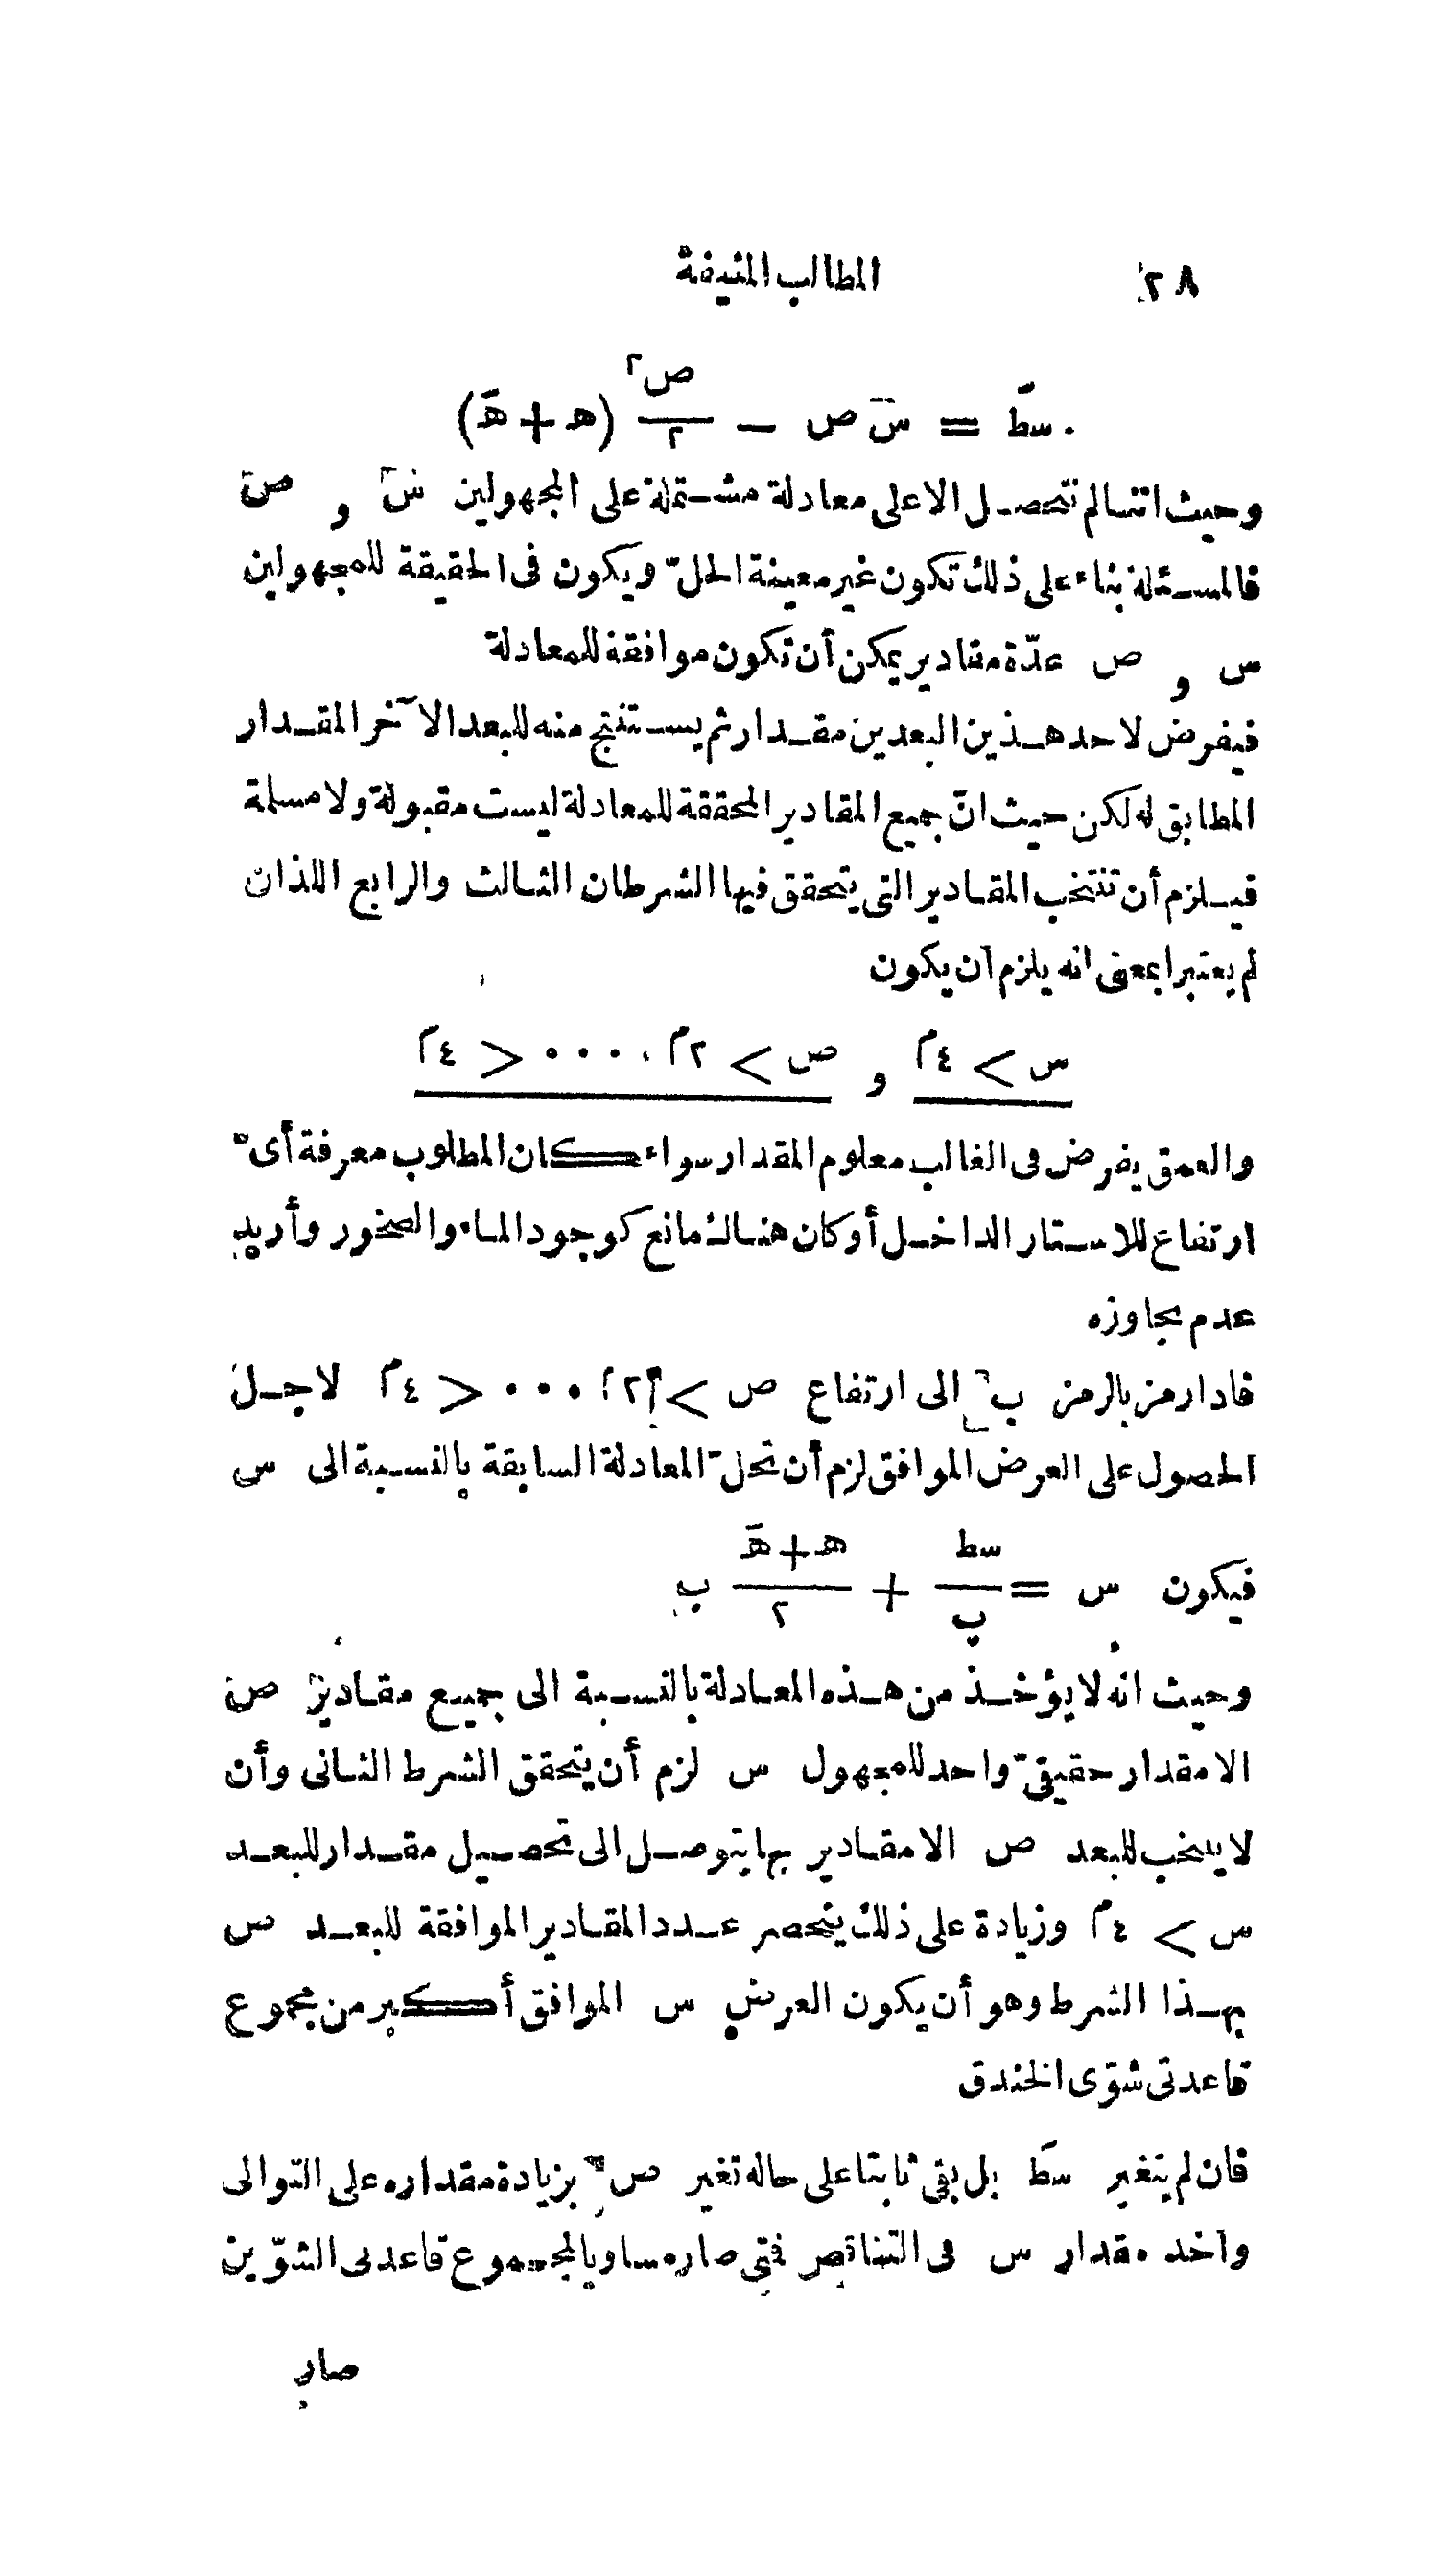 ٢٨ المطالب المنيفة
سطَ = س ص − ص٢/٢ (ه + هَ)
وحيث اننا لم نتحصل الا على معادلة مشتملة على المجهولين س و ص
فالمسئلة بناء على ذلك تكون غير معينة الحلّ ويكون فى الحقيقة للمجهولين
س و ص عدّة مقادير يمكن أن تكون موافقة للمعادلة
فيفرض لاحد هذين البعدين مقدار ثم يستنتج منه للبعد الآخر المقدار
المطابق له لكن حيث انّ جميع المقادير المحققة للمعادلة ليست مقبولة ولا مسلمة
فيلزم أن تنتخب المقادير التى يتحقق فيها الشرطان الثالث والرابع اللذان
لم يعتبرا بمعنى انه يلزم أن يكون
س > ٤م و ص > ٢م ٠٠٠٠ < ٤م
والعمق يفرض فى الغالب معلوم المقدار سواء كان المطلوب معرفة أىّ
ارتفاع للاستار الداخل أو كان هناك مانع كوجود الماء والصخور وأريد
عدم مجاوزه
فاذا رمز بالرمز ب الى ارتفاع ص > ٢م ٠٠٠ < ٤م لاجل
الحصول على العرض الموافق لزم أن تحلّ المعادلة السابقة بالنسبة الى س
فيكون س = سط/ب + ه + هَ/٢ ب
وحيث انه لا يؤخذ من هذه المعادلة بالنسبة الى جميع مقادير ص
الا مقدار حقيقىّ واحد للمجهول س لزم أن يتحقق الشرط الثانى وأن
لا ينتخب للبعد ص الا مقادير بها يتوصل الى تحصيل مقدار للبعد
س > ٤م وزيادة على ذلك ينحصر عدد المقادير الموافقة للبعد ص
بهذا الشرط وهو أن يكون العرض س الموافق أكبر من مجموع
قاعدتى شقّى الخندق
فان لم يتغير سطَ بل بقى ثابتا على حاله تغير ص بزيادة مقداره على التوالى
وأخذ مقدار س فى التناقص فمتى صار مساويا لمجموع قاعدتى الشوّين
صار